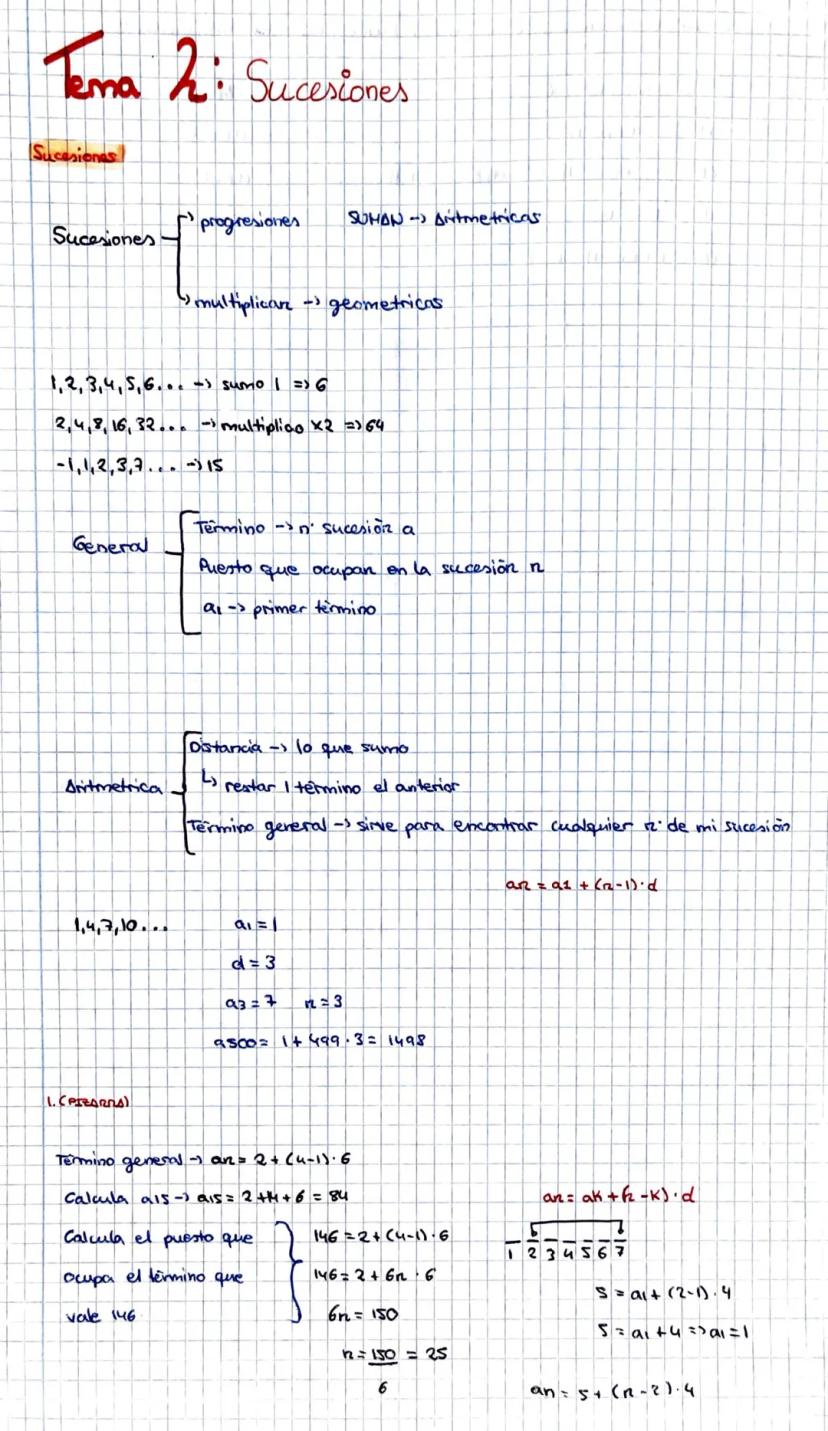 Tema 2: Sucesiones
Sucesiones
Sucesiones
progresiones SUMAN -> Aritmetricas
multiplicar -> geometricas
1, 2, 3, 4, 5, 6... -> sumo 1 => 6
2, 4, 8, 16, 32... -> multiplico x2 => 64
-1, 1, 2, 3, 7... -> 15
General
Término -> nº sucesión a
Puesto que ocupan en la sucesión n
a1 -> primer término
Aritmetrica
Distancia -> lo que sumo
↳ restar 1 término el anterior
Término general -> sirve para encontrar cualquier nº de mi sucesión
an = a1 + (n-1)·d
1, 4, 7, 10... a1 = 1
d = 3
a3 = 7 n = 3
a500 = 1 + 499 · 3 = 1498
1. (PIZARRA)
Término general -> an = 2 + (4-1)·6
Calcula a15 -> a15 = 2 + 14 + 6 = 84
an = ak + (n-k)·d
Calcula el puesto que
ocupa el término que
vale 146
146 = 2 + (4-1)·6
146 = 2 + 6n · 6
6n = 150
n = 150/6 = 25
1 2 3 4 5 6 7
5 = a1 + (2-1)·4
5 = a1 + 4 => a1 = 1
an = 5 + (n-2)·4